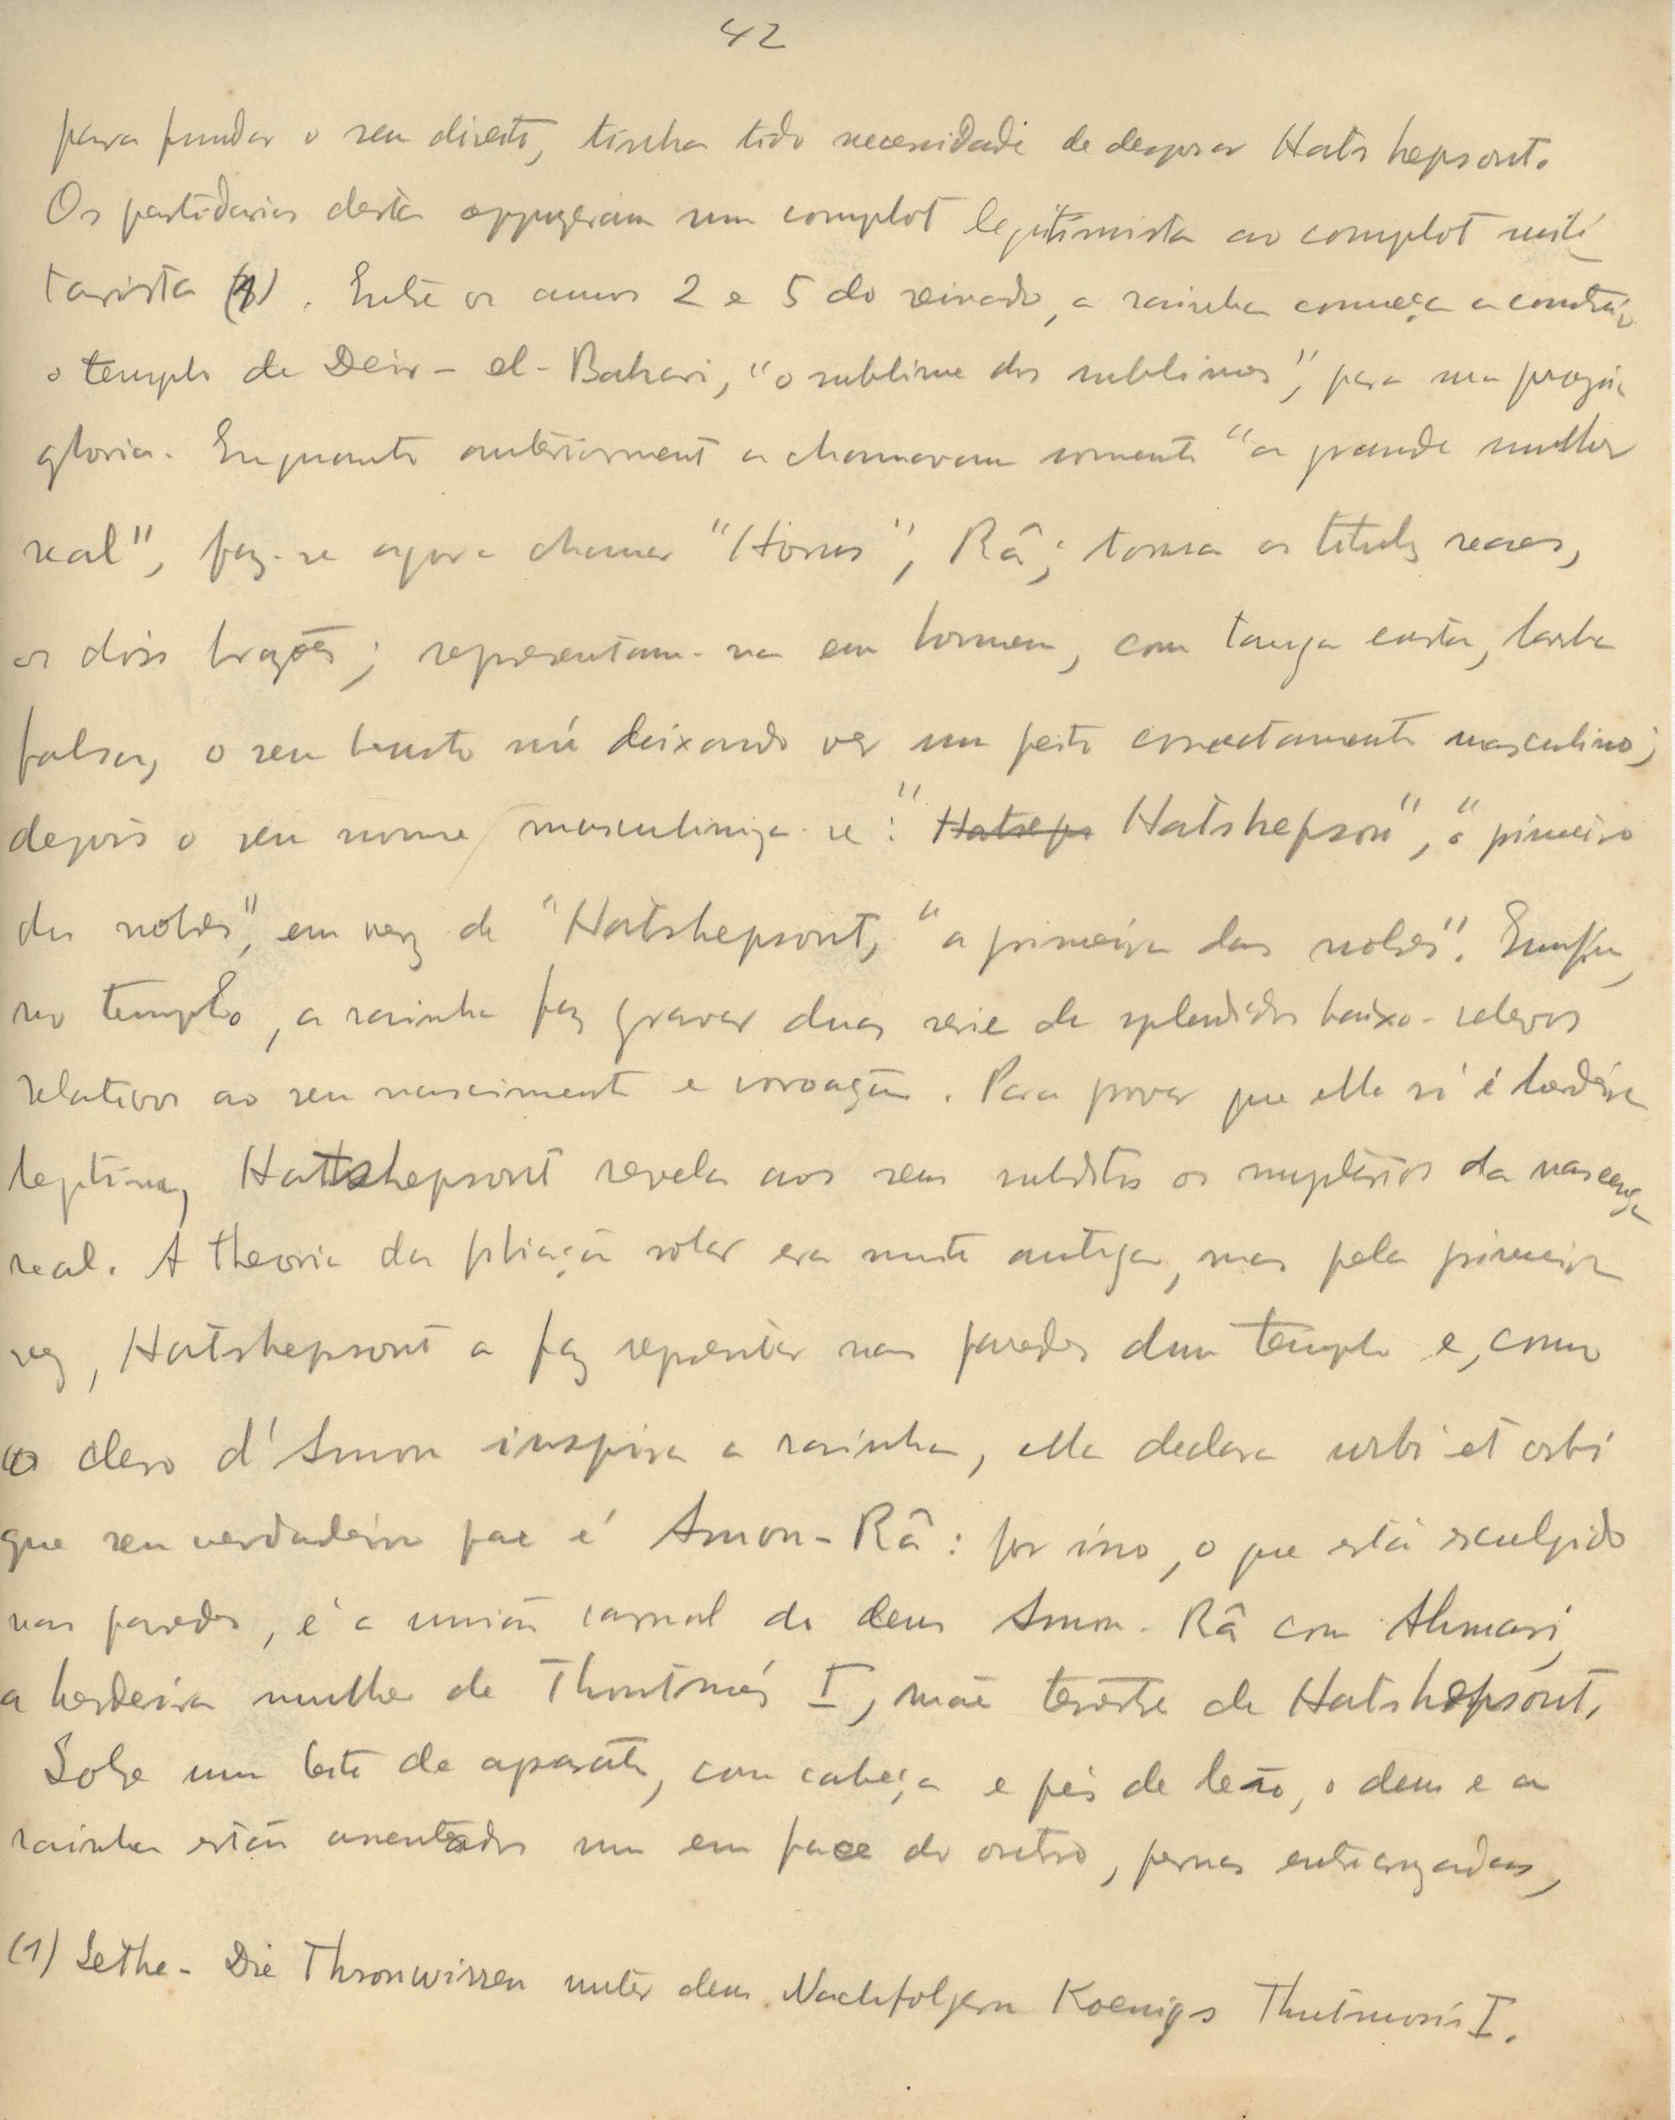 42
para fundar o seu direito, tinha tido necessidade de desposar Hatshepsout.
Os partidarios desta oppuzeram um complot legitimista ao complot mili
tarista (1). Entre os annos 2 e 5 do reinado, a rainha começa a construir
o templo de Deir-el-Bahari, "o sublime dos sublimes", para sua propria
gloria. Enquanto anteriormente a chamavam somente "a grande mulher
real", faz-se agora chamar "Horus", Râ; toma os titulos reaes,
os dois brazões; representam-na em homem, com tanga curta, barba
falsa, o seu busto nú deixando ver um peito correctamente masculino;
depois o seu nome masculiniza-se: "Hatseps Hatshepsou", "o primeiro
dos nobres", em vez de "Hatshepsout, "a primeira das nobres". Emfim,
no templo, a rainha faz gravar duas serie de splendidos baixo-relevos
relativos ao seu nascimento e coroação. Para provar que ella só é herdeira
legitima, Hatshepsout revela aos seus subditos os mysterios da nascença
real. A theoria da filiação solar era muito antiga, mas pela primeira
vez, Hatshepsout a faz representar nas paredes dum templo e, como
o clero d'Amon inspira a rainha, ella declara urbi et orbi
que seu verdadeiro pae é Amon-Râ: por isso, o que está esculpido
nas paredes, é a união carnal do deus Amon-Râ com Ahmasi,
a herdeira mulher de Thoutmés I, mãe terestre de Hatshepsout.
Sobre um leito de aparato, com cabeça e pés de leão, o deus e a
rainha estão assentados um em face do outro, pernas entrecruzadas,
(1) Sethe - Die Thronwirren unter den Nachfolgern Koenigs Thutmosis I.